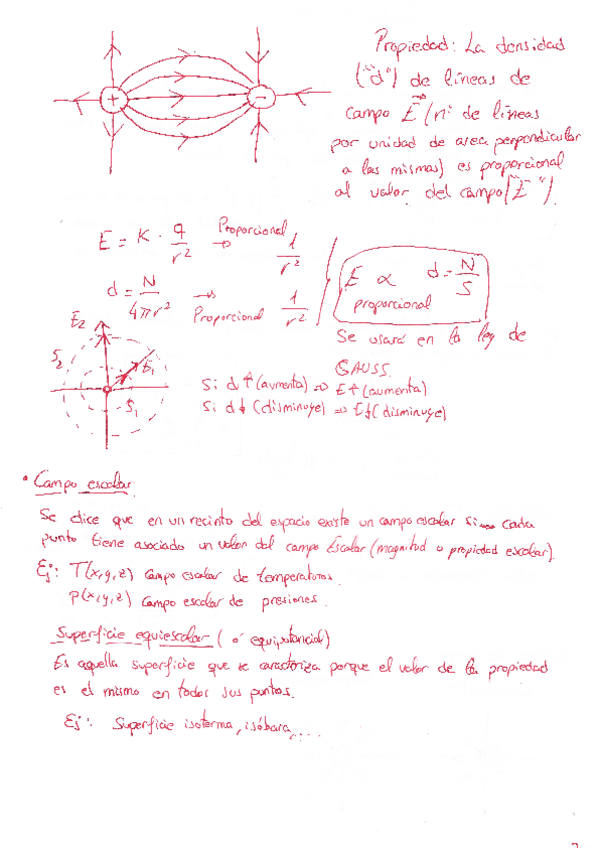 Propiedad: La densidad
("d") de líneas de
campo E (nº de líneas
por unidad de area perpendicular
a las mismas) es proporcional
al valor del campo ("E").
+
-
E = K · q/r² Proporcional → 1/r²
d = N/4πr² → Proporcional 1/r²
E ∝ d = N/S
proporcional
Se usará en la ley de
GAUSS.
E2
S2
E1
S1
Si d↑ (aumenta) => E↑ (aumenta)
Si d↓ (disminuye) => E↓ (disminuye)
• Campo escalar
Se dice que en un recinto del espacio existe un campo escalar si cada
punto tiene asociado un valor del campo Escalar (magnitud o propiedad escalar).
Ej: T(x,y,z) campo escalar de temperaturas.
p(x,y,z) campo escalar de presiones.
Superficie equiescalar (o equipotencial)
Es aquella superficie que se caracteriza porque el valor de la propiedad
es el mismo en todos sus puntos.
Ej: Superficie isoterma, isóbara, ....